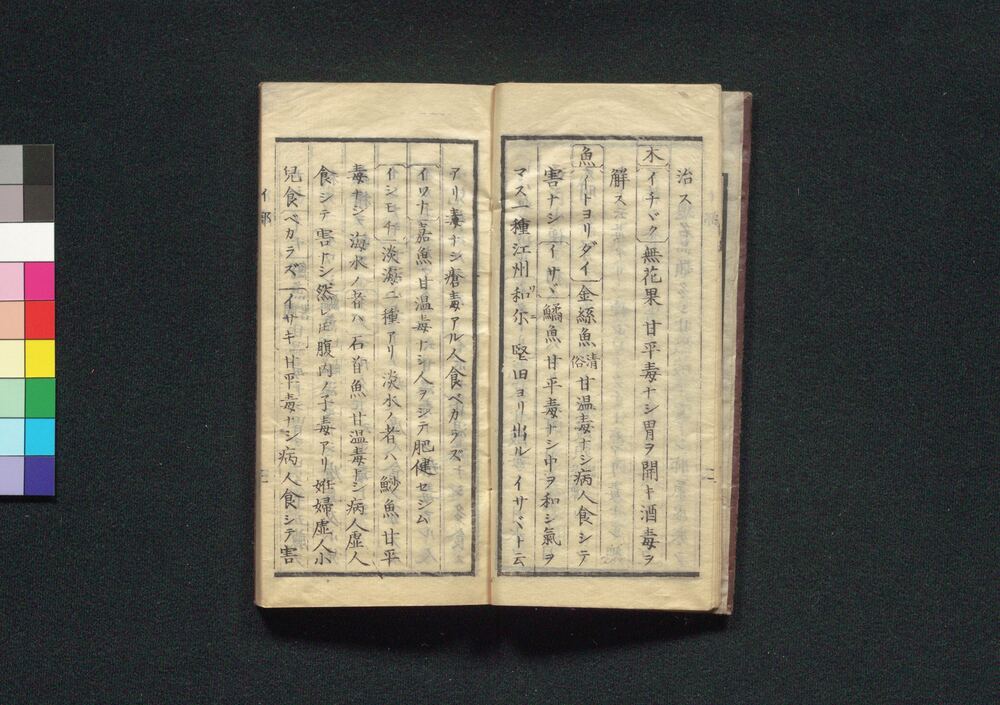 治ス
木 イチヾク 無花果 甘平毒ナシ胃ヲ開キ酒毒ヲ
解ス
魚 イトヨリダイ 金絲魚 清俗 甘温毒ナシ病人食シテ
害ナシ イサヾ 鱊魚 甘平毒ナシ中ヲ和シ氣ヲ
マス一種江州和尓 ワニ 堅田ヨリ出ル イサヾト云
アリ毒ナシ瘡毒アル人食ベカラズ
イワナ 嘉魚 甘温毒ナシ人ヲシテ肥健セシム
イシモチ 淡海二種アリ 淡水ノ者ハ鯋魚 甘平
毒ナシ 海水ノ者ハ 石首魚 甘温毒ナシ病人虚人
食シテ害ナシ然レ𪜈腹内ノ子毒アリ妊婦虚人小
兒食ベカラズ イサキ 甘平毒ナシ病人食シテ害
イ部
二
三